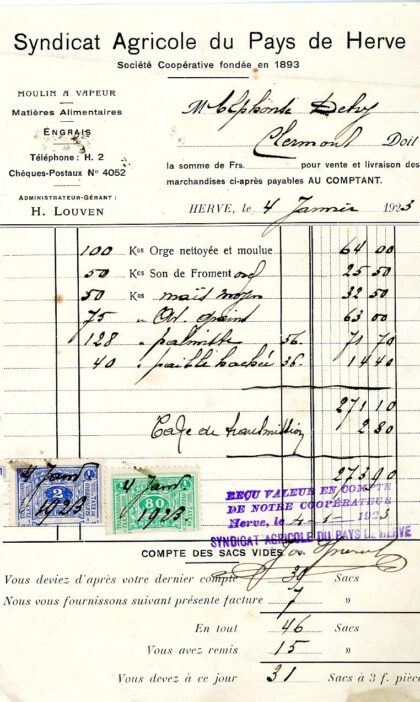 Syndicat Agricole du Pays de Herve
Société Coopérative fondée en 1893
MOULIN A VAPEUR
Matières Alimentaires
ENGRAIS
Téléphone: H. 2
Chèques-Postaux N° 4052
ADMINISTRATEUR-GÉRANT:
H. LOUVEN
M Alphonse
Clermont Doit
la somme de Frs. pour vente et livraison des
marchandises ci-après payables AU COMPTANT.
HERVE, le 4 Janvier 1923
100 Kos Orge nettoyée et moulue 64 00
50 Kos Son de Froment 25 50
50 Kos maïs moyen 32 50
75 " 63 00
128 " palmiste 56. 71 70
40 " paille hachée 36. 14 40
271 10
Taxe de transmission 2 80
273 90
4 Janv 1923
2
4 Janv 1923
80
REÇU VALEUR EN COMPTE
DE NOTRE COOPÉRATEUR
Herve, le 4-1-1923
SYNDICAT AGRICOLE DU PAYS DE HERVE
COMPTE DES SACS VIDES
Vous deviez d'après votre dernier compte 39 Sacs
Nous vous fournissons suivant présente facture 7 »
En tout 46 Sacs
Vous avez remis 15 »
Vous devez à ce jour 31 Sacs à 3 f. pièce